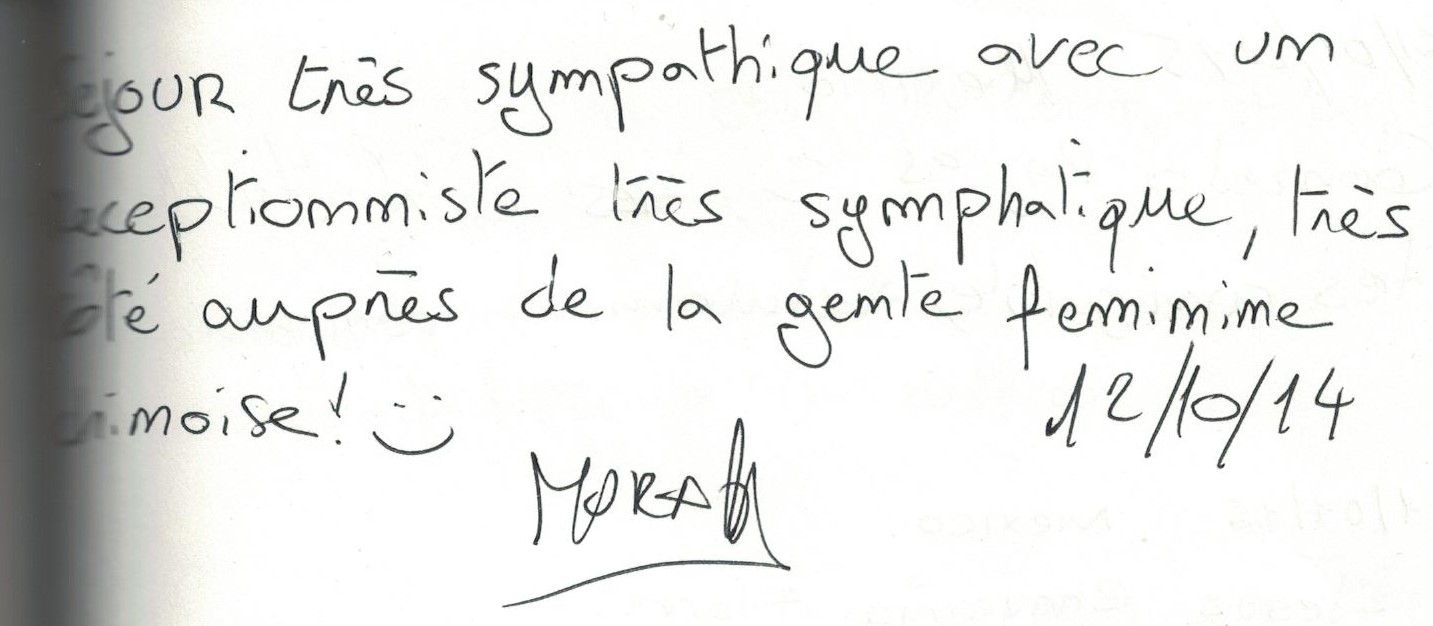 Séjour très sympathique avec un
réceptionniste très symphatique, très
côté auprès de la gente feminine
chinoise! :)
12/10/14
MORAN